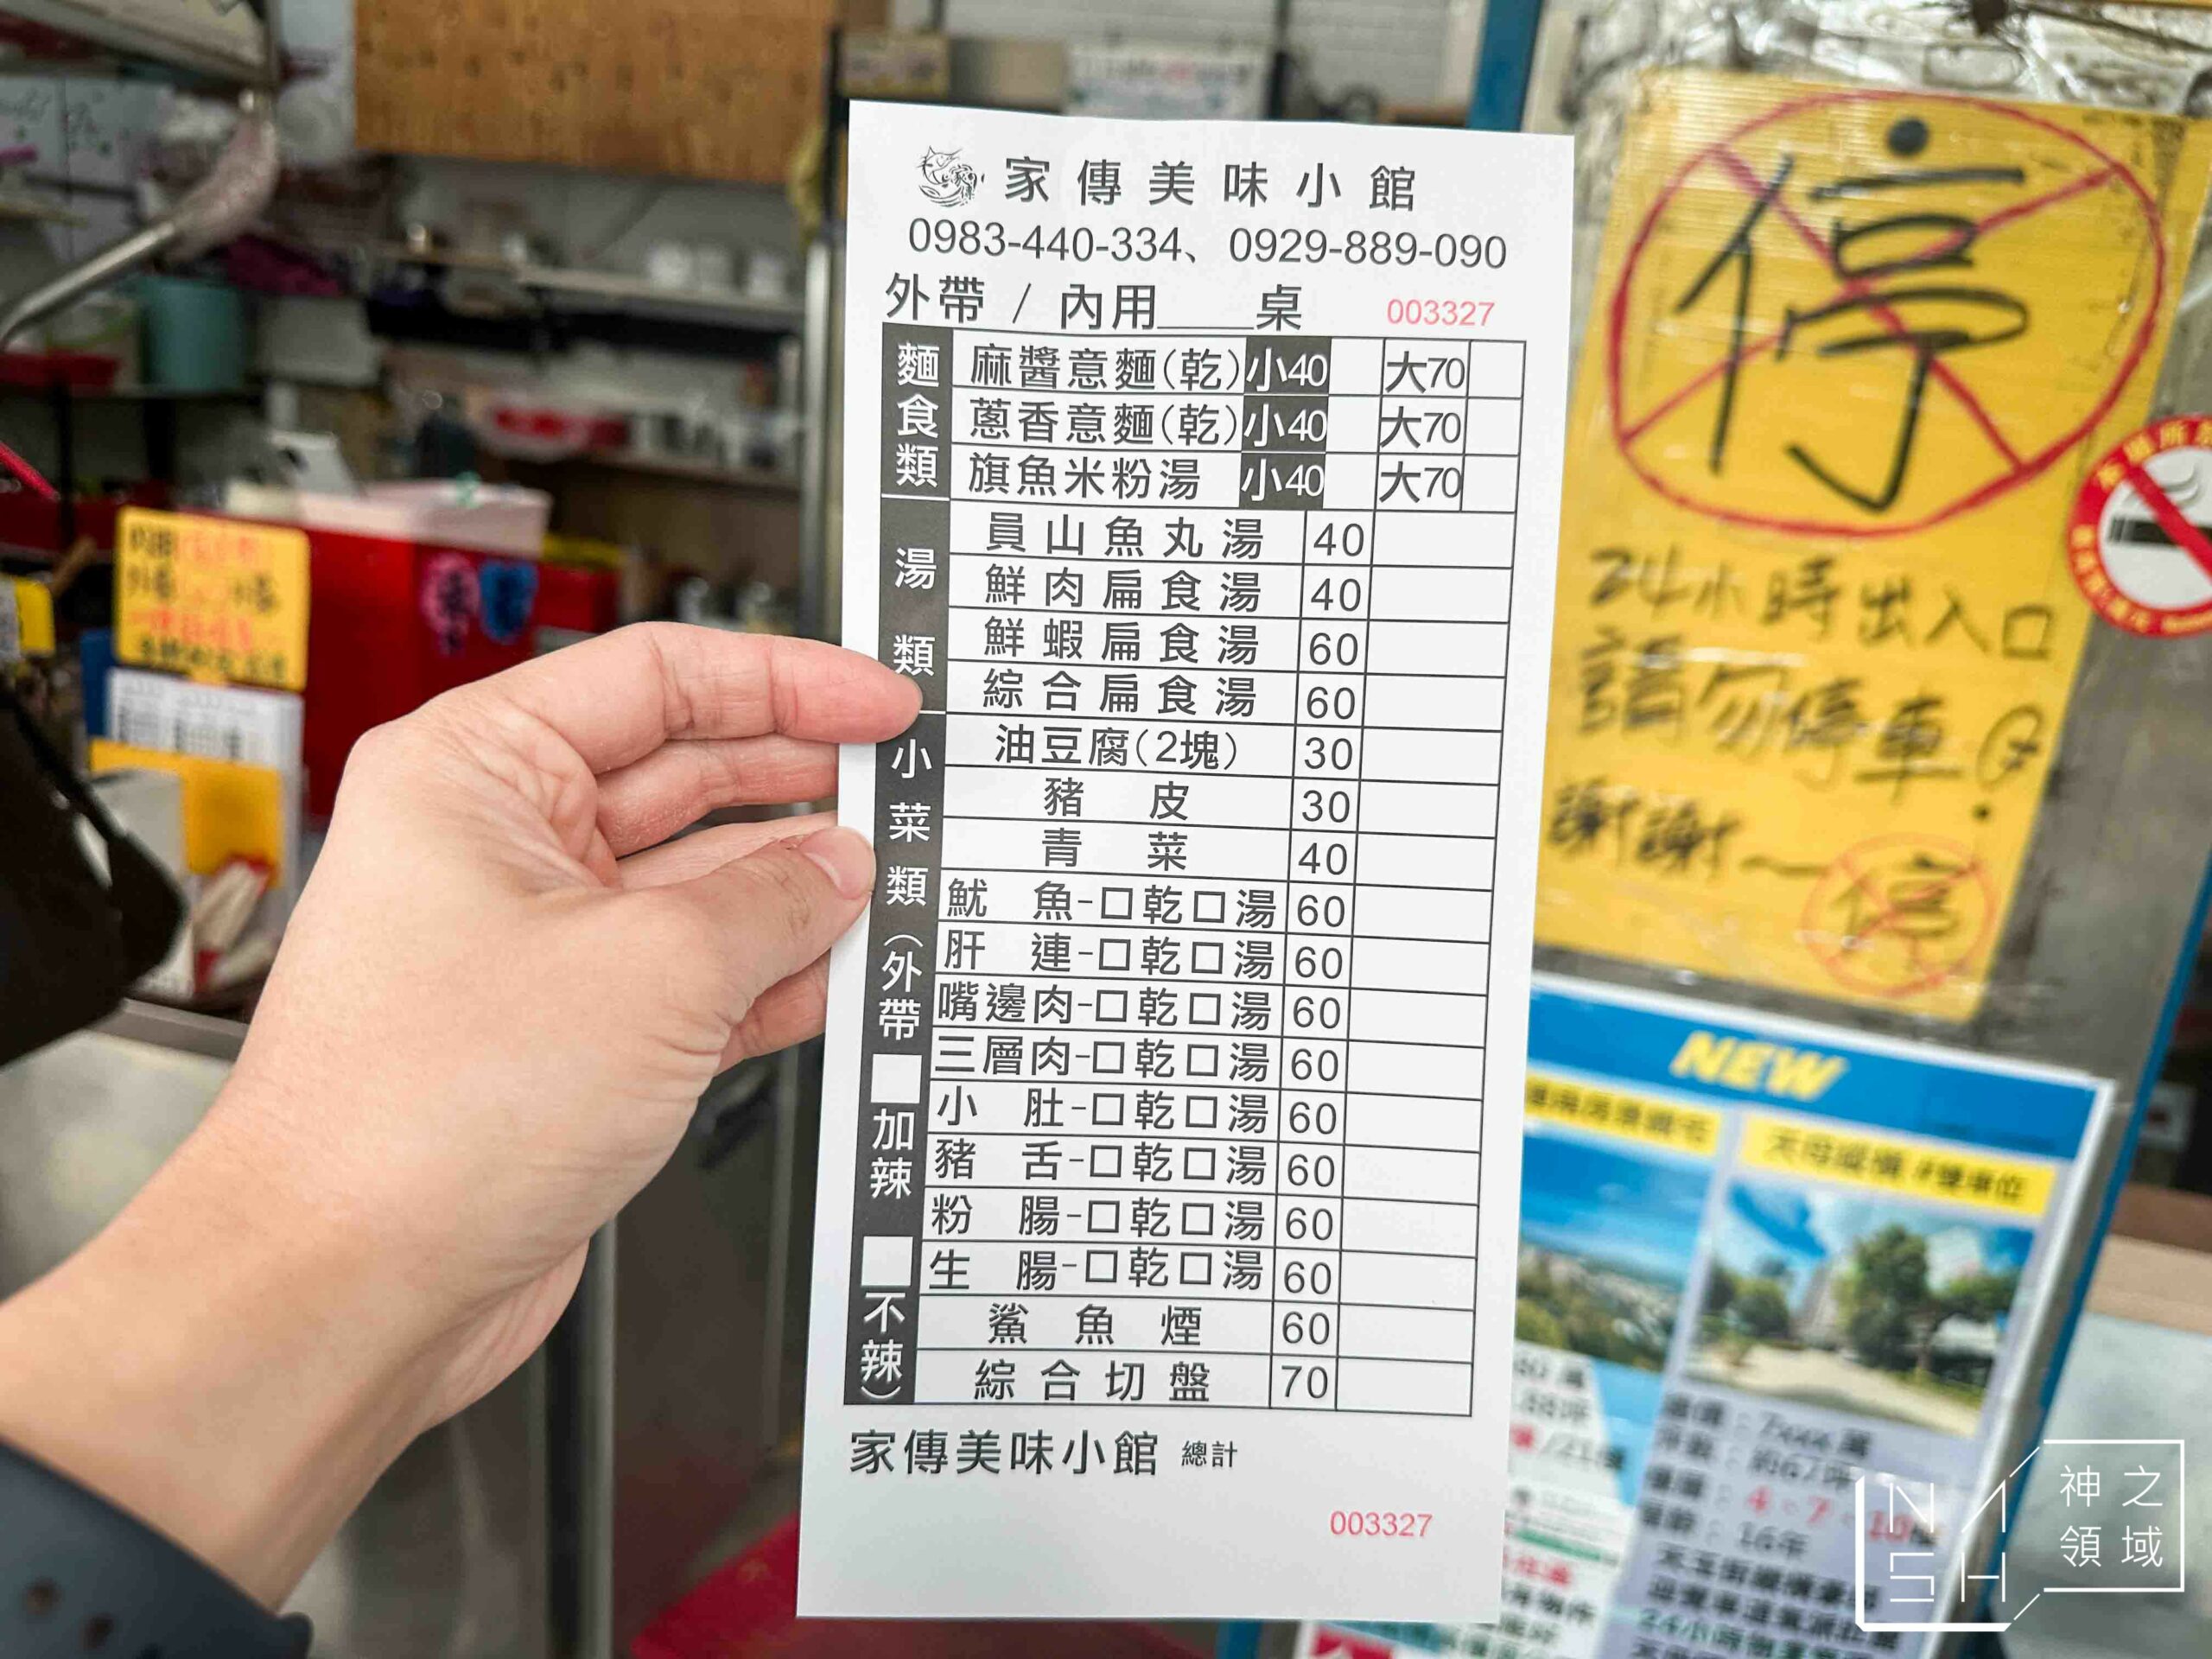 家傳美味小館
0983-440-334、0929-889-090
外帶 / 內用____桌 003327
麵食類
麻醬意麵(乾) 小40 大70
蔥香意麵(乾) 小40 大70
旗魚米粉湯 小40 大70
湯類
員山魚丸湯 40
鮮肉扁食湯 40
鮮蝦扁食湯 60
綜合扁食湯 60
小菜類(外帶□加辣 □不辣)
油豆腐(2塊) 30
豬皮 30
青菜 40
魷魚-口乾口湯 60
肝連-口乾口湯 60
嘴邊肉-口乾口湯 60
三層肉-口乾口湯 60
小肚-口乾口湯 60
豬舌-口乾口湯 60
粉腸-口乾口湯 60
生腸-口乾口湯 60
鯊魚煙 60
綜合切盤 70
家傳美味小館 總計
003327
停
24小時出入口
請勿停車
謝謝~
停
NEW
16年
NASH
神之
領域